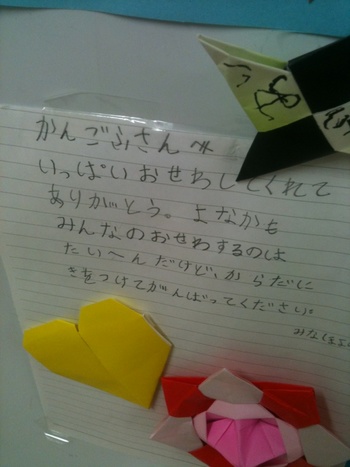 かんごふさんへ
いっぱいおせわしてくれて
ありがとう。よなかも
みんなのおせわするのは
たいへんだけど、からだに
きをつけてがんばってください。